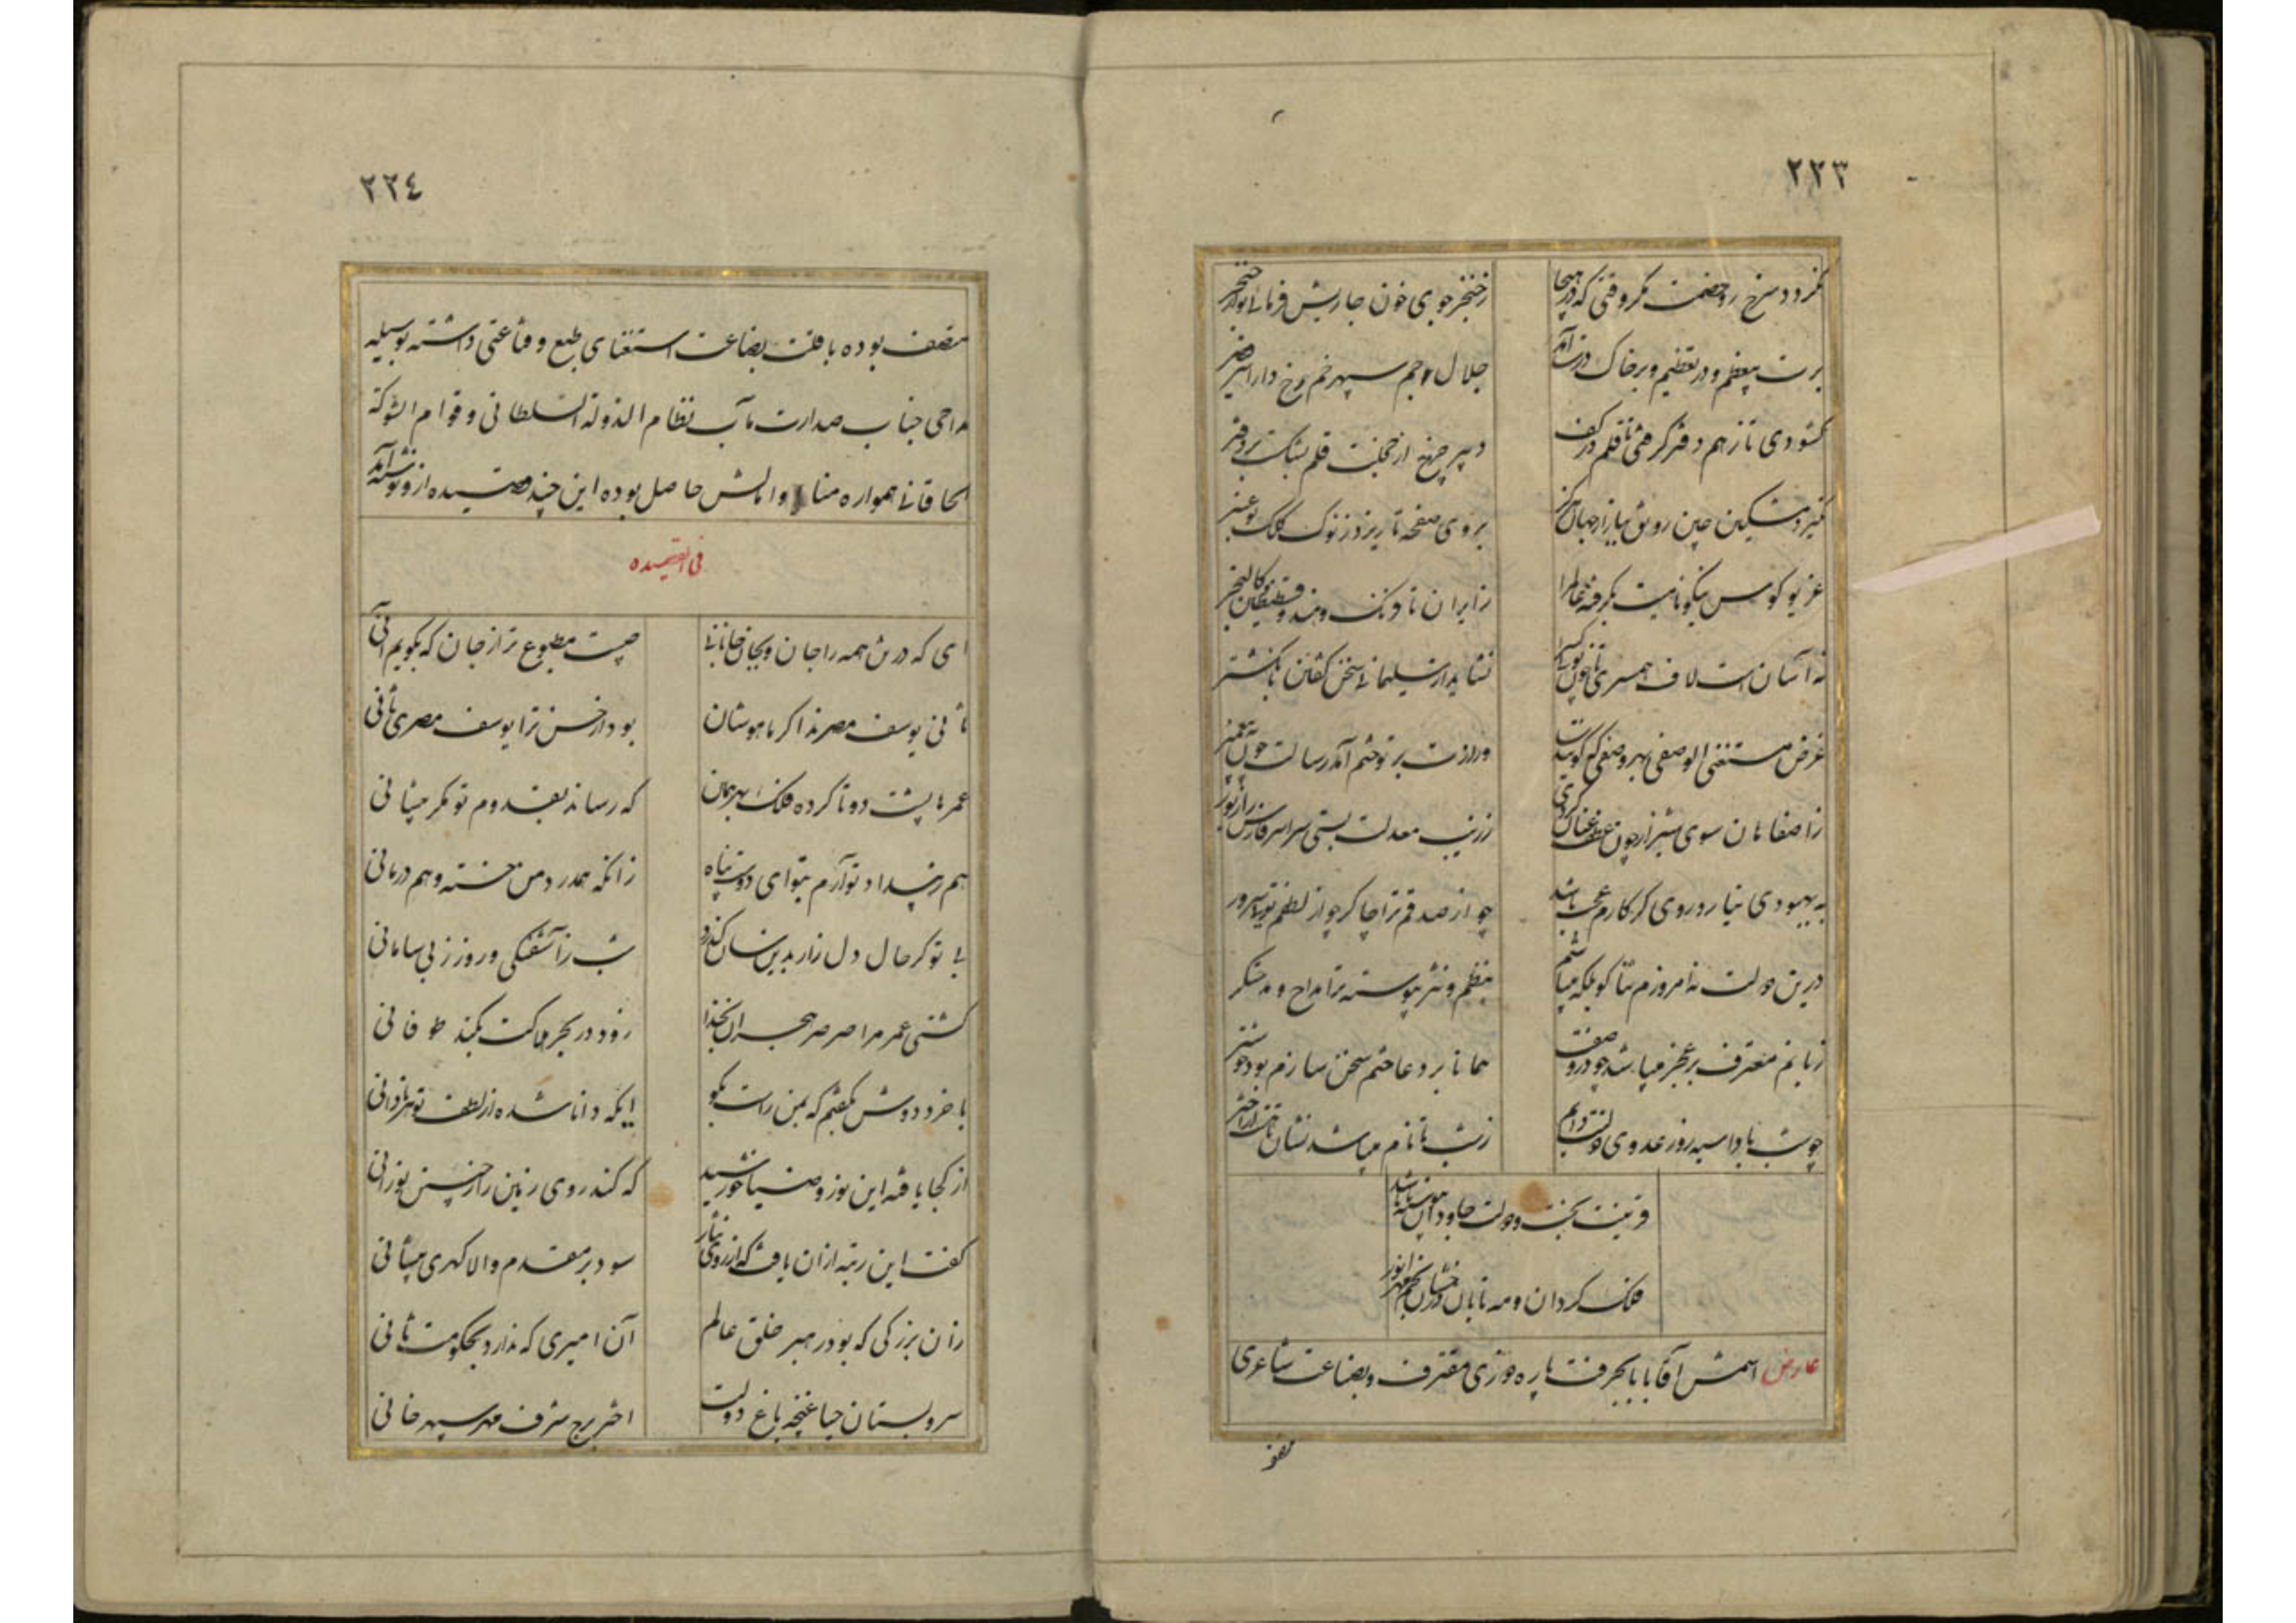 ٢٢٣
نگردد سرخ رو خصمت مگر وقتی که در هیجا
ز خنجر جوی خون جاریش فرمائی بر
برت پی عظم و در تعظیم و بر خاک درت آمد
جلال جم سپهر خم رخ دارا سر
گشودی تا ز هم دفتر گرفتی تا قلم در کف
دبیر چرخ از خجلت قلم بشکست بر دفتر
نگیرد مشکین چین رونق ببازار جهان هرگز
بروی صفحه تا ریزد ز نوک کلک تو عنبر
غریو کوس نیکونامیت بگرفته عالم را
ز ایران تا فرنگ و هند و
نه آسان است لاف همسری با چون تو
نشاید از سلیمانی سخن گفتن بانگشتر
غرض مستغنی الوصفی بهر وصفی که گویندت
وزارت بر تو ختم آمد رسالت چون به پیغمبر
ز اصفاهان سوی شیراز چون عطف عنان کردی
ز زیب معدلت بستی سراسر فارس را زیور
به بهبودی نیارد روی گر کارم عجب باشد
چو از صدقم ترا چاکر چو از لطفم تویی سرور
درین دولت نه امروزم ثنا گو بلکه میباشم
بنظم و نثر پیوسته ترا مداح و مدحتگر
زبانم معترف بر عجز میباشد چو در وصفت
همانا بر دعا ختم سخن سازم بود خوشتر
چو شب بادا سیه روز عدوی دولتت دایم
ز شب تا نام میباشد نشان تا هست از اختر
قرینت بخت و دولت جاودان پیوسته تا باشد
فلک گردان و مه تابان درخشان مهر انور
عارض اسمش آقا بابا بحرفت پاره دوزی مقترف و بضاعت شاعری
متصف
٢٢٤
متصف بوده با قلت بضاعت استغنای طبع و قناعتی داشته بوسیله
مداحی جناب صدارت مآب نظام الدولة السلطانی و قوام الشوکة
الخاقانی همواره منال و امالش حاصل بوده این چند قصیده ازو نوشته آمد
فی القصیده
ای که در تن همه را جان و بجان جانانی
چیست مطبوع تر از جان که بگویم آنی
ثانی یوسف مصرند اگر ماهوشان
بود از حسن ترا یوسف مصری ثانی
عمرها پشت دوتا کرده فلک بهر همان
که رساند بقدوم تو مگر پیشانی
هم ز بیداد تو آرم بتو ای دوست پناه
زانکه همدرد من خسته و هم درمانی
بی تو گر حال دل زار بدین سان گذرد
شب ز آشفتگی و روز ز بی سامانی
کشتی عمر مرا صرصر هجران بخدا
زود در بحر هلاکت بکند طوفانی
با خرد دوش بگفتم که بمن راست بگو
ایکه دانا شده از لطف تو هر نادانی
از کجا یافته این نور و ضیا خورشید
که کند روی زمین را ز حسن نورانی
گفت این رتبه از آن یافت که از روی نیاز
سود بر مقدم والا گهری پیشانی
زان بزرگی که بود رهبر خلق عالم
آن امیری که ندارد بحکومت ثانی
سرو بستان حیا غنچه باغ دولت
اختر برج شرف مهر سپهر خانی